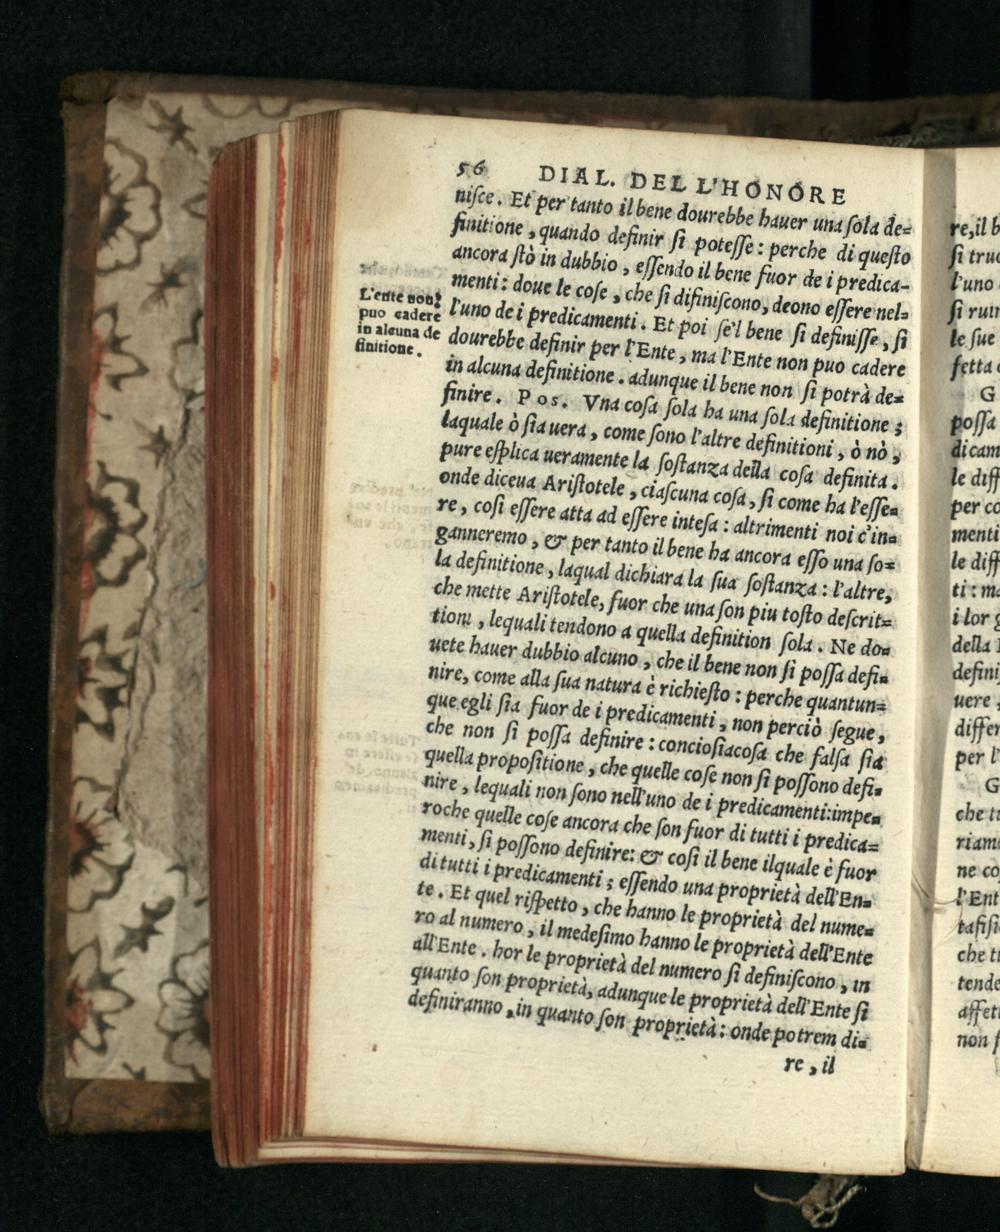 56 DIAL. DELL'HONORE
nisce. Et per tanto il bene dourebbe hauer una sola de=
finitione, quando definir si potesse: perche di questo
ancora stò in dubbio, essendo il bene fuor de i predica-
menti: doue le cose, che si difiniscono, deono essere nel=
l'uno de i predicamenti. Et poi se'l bene si definisse, si
dourebbe definir per l'Ente, ma l'Ente non puo cadere
in alcuna definitione. adunque il bene non si potrà de=
finire. Pos. Vna cosa sola ha una sola definitione;
laquale ò sia uera, come sono l'altre definitioni, ò nò,
pure esplica ueramente la sostanza della cosa definita.
onde diceua Aristotele, ciascuna cosa, si come ha l'esse=
re, cosi essere atta ad essere intesa: altrimenti noi c'in=
ganneremo, & per tanto il bene ha ancora esso una so=
la definitione, laqual dichiara la sua sostanza: l'altre,
che mette Aristotele, fuor che una son piu tosto descrit=
tioni, lequali tendono a quella definition sola. Ne do=
uete hauer dubbio alcuno, che il bene non si possa defi=
nire, come alla sua natura è richiesto: perche quantun=
que egli sia fuor de i predicamenti, non perciò segue,
che non si possa definire: conciosiacosa che falsa sia
quella propositione, che quelle cose non si possono defi=
nire, lequali non sono nell'uno de i predicamenti:impe=
roche quelle cose ancora che son fuor di tutti i predica=
menti, si possono definire: & cosi il bene ilquale è fuor
di tutti i predicamenti; essendo una proprietà dell'En=
te. Et quel rispetto, che hanno le proprietà del nume=
ro al numero, il medesimo hanno le proprietà dell'Ente
all'Ente. hor le proprietà del numero si definiscono, in
quanto son proprietà, adunque le proprietà dell'Ente si
definiranno, in quanto son proprietà: onde potrem di=
re, il
L'ente non
puo cadere
in alcuna de
finitione.
re, il b
si truo
l'uno
si ruin
le sue
fetta
G
possa
dicam
le diff
per co
menti
le diff
ti: ma
i lor g
della
defini
uere,
differ
per l'
G
che tu
riamo
ne co
l'Ent
tafisi
che tr
tende
affett
non s